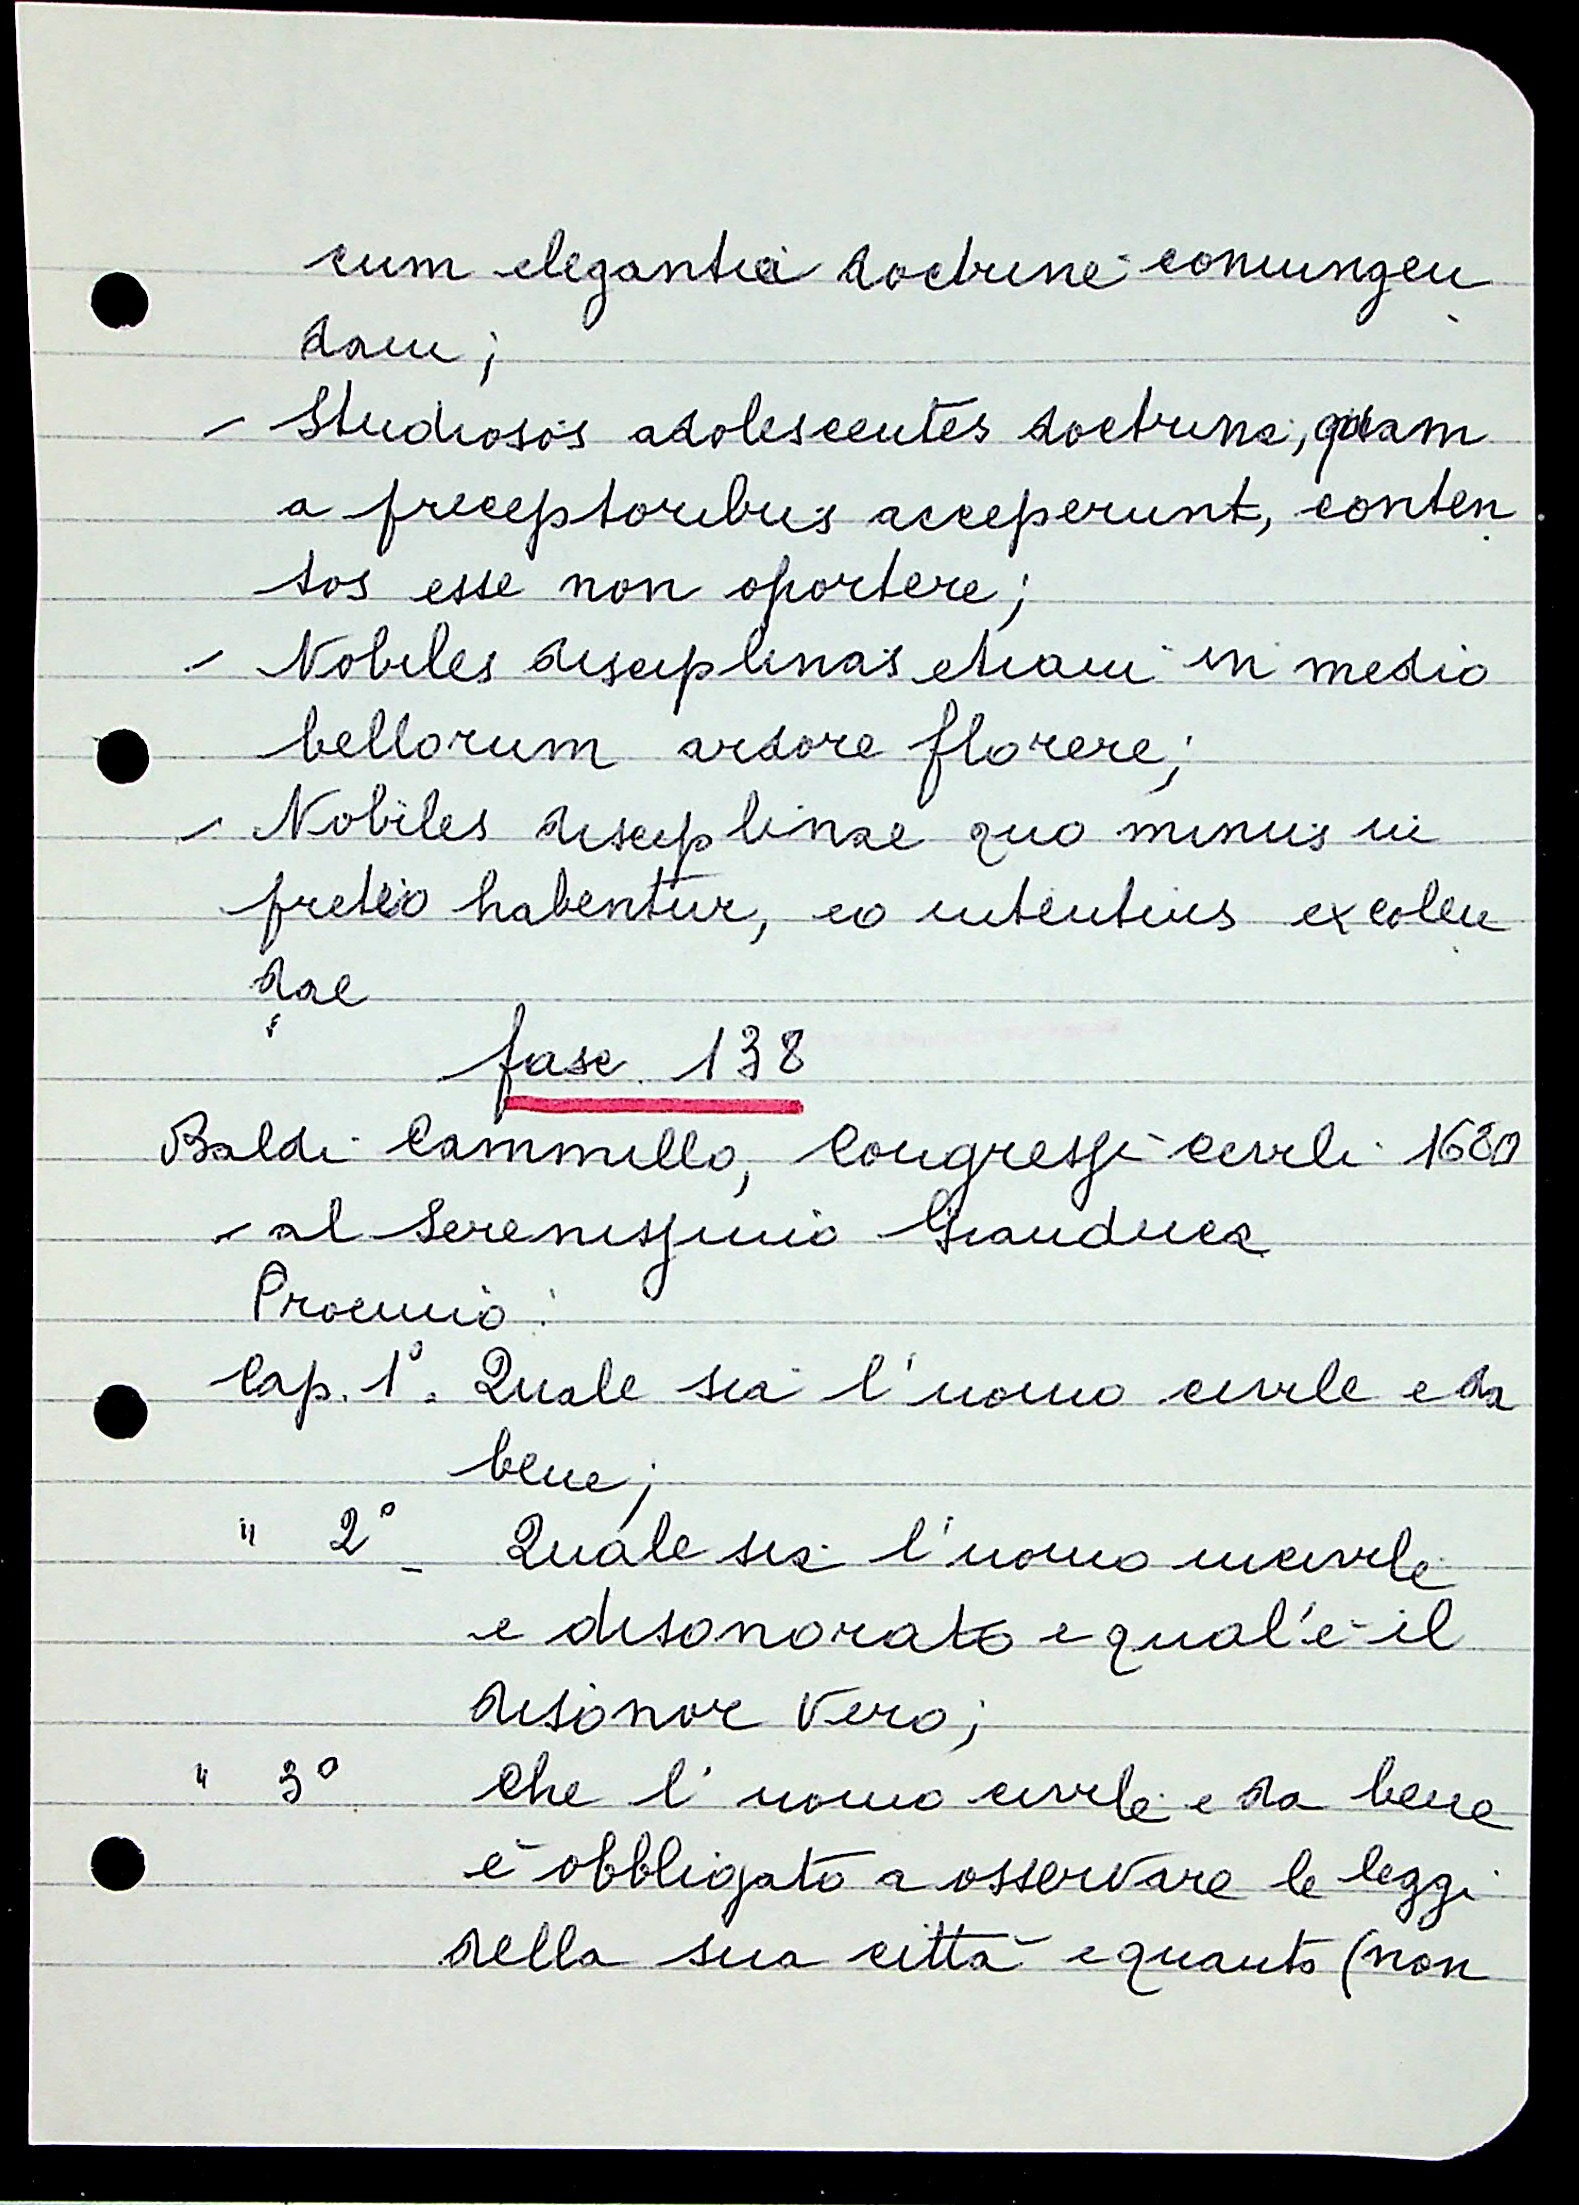 cum elegantia doctrine coniungen
dam;
- Studiosos adolescentes doctrina, quam
a preceptoribus acceperunt, conten
tos esse non oportere;
- Nobiles disciplinas etiam in medio
bellorum ardore florere;
- Nobiles disciplinae quo minus in
pretio habentur, eo intentius excolen
dae
fasc. 138
Baldi Cammillo, Congressi civili 1680
- al Serenissimo Granduca
Proemio:
Cap. 1°. Quale sia l'uomo civile e da
bene;
" 2° - Quale sia l'uomo incivile
e disonorato e qual'è il
disonor vero;
" 3° Che l'uomo civile e da bene
è obbligato a osservare le leggi
della sua città e quanto (non